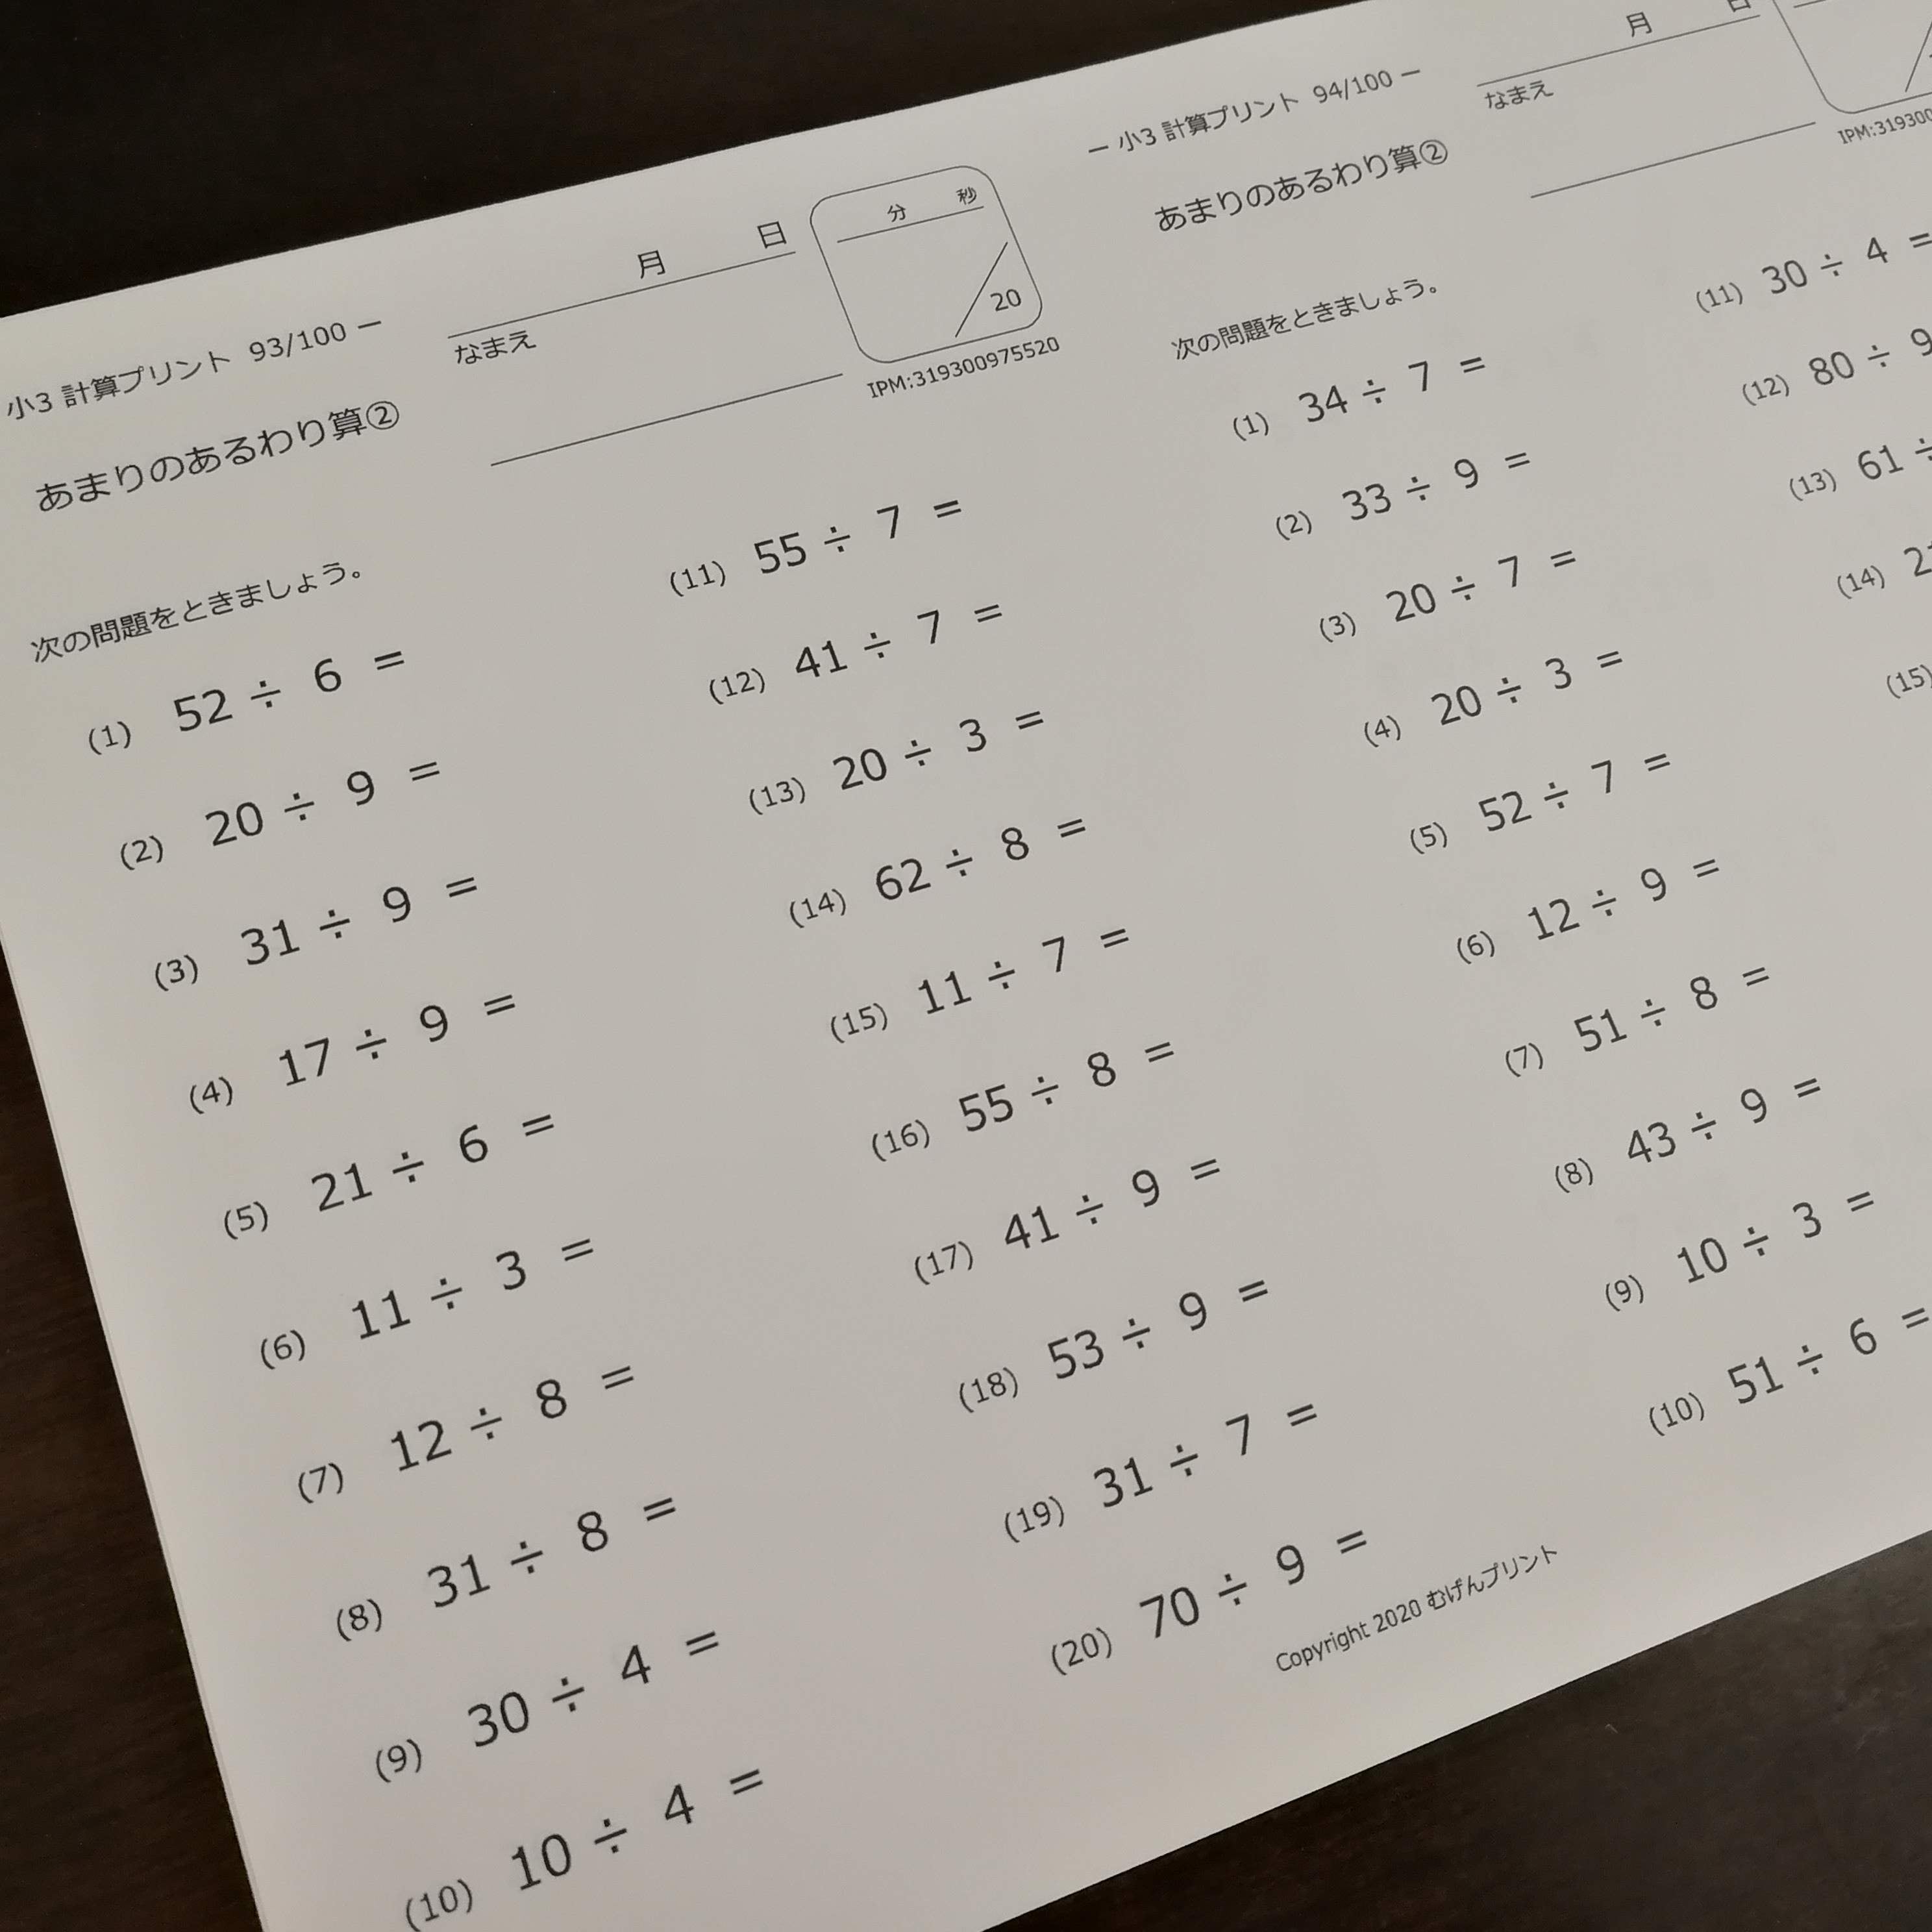 小3 計算プリント 93/100 ー
月 日
なまえ
分 秒
20
IPM:319300975520
あまりのあるわり算②
次の問題をときましょう。
(1) 52 ÷ 6 =
(2) 20 ÷ 9 =
(3) 31 ÷ 9 =
(4) 17 ÷ 9 =
(5) 21 ÷ 6 =
(6) 11 ÷ 3 =
(7) 12 ÷ 8 =
(8) 31 ÷ 8 =
(9) 30 ÷ 4 =
(10) 10 ÷ 4 =
(11) 55 ÷ 7 =
(12) 41 ÷ 7 =
(13) 20 ÷ 3 =
(14) 62 ÷ 8 =
(15) 11 ÷ 7 =
(16) 55 ÷ 8 =
(17) 41 ÷ 9 =
(18) 53 ÷ 9 =
(19) 31 ÷ 7 =
(20) 70 ÷ 9 =
Copyright 2020 むげんプリント
ー 小3 計算プリント 94/100 ー
月 日
なまえ
IPM:319300
あまりのあるわり算②
次の問題をときましょう。
(1) 34 ÷ 7 =
(2) 33 ÷ 9 =
(3) 20 ÷ 7 =
(4) 20 ÷ 3 =
(5) 52 ÷ 7 =
(6) 12 ÷ 9 =
(7) 51 ÷ 8 =
(8) 43 ÷ 9 =
(9) 10 ÷ 3 =
(10) 51 ÷ 6 =
(11) 30 ÷ 4 =
(12) 80 ÷ 9
(13) 61 ÷
(14) 2
(15)